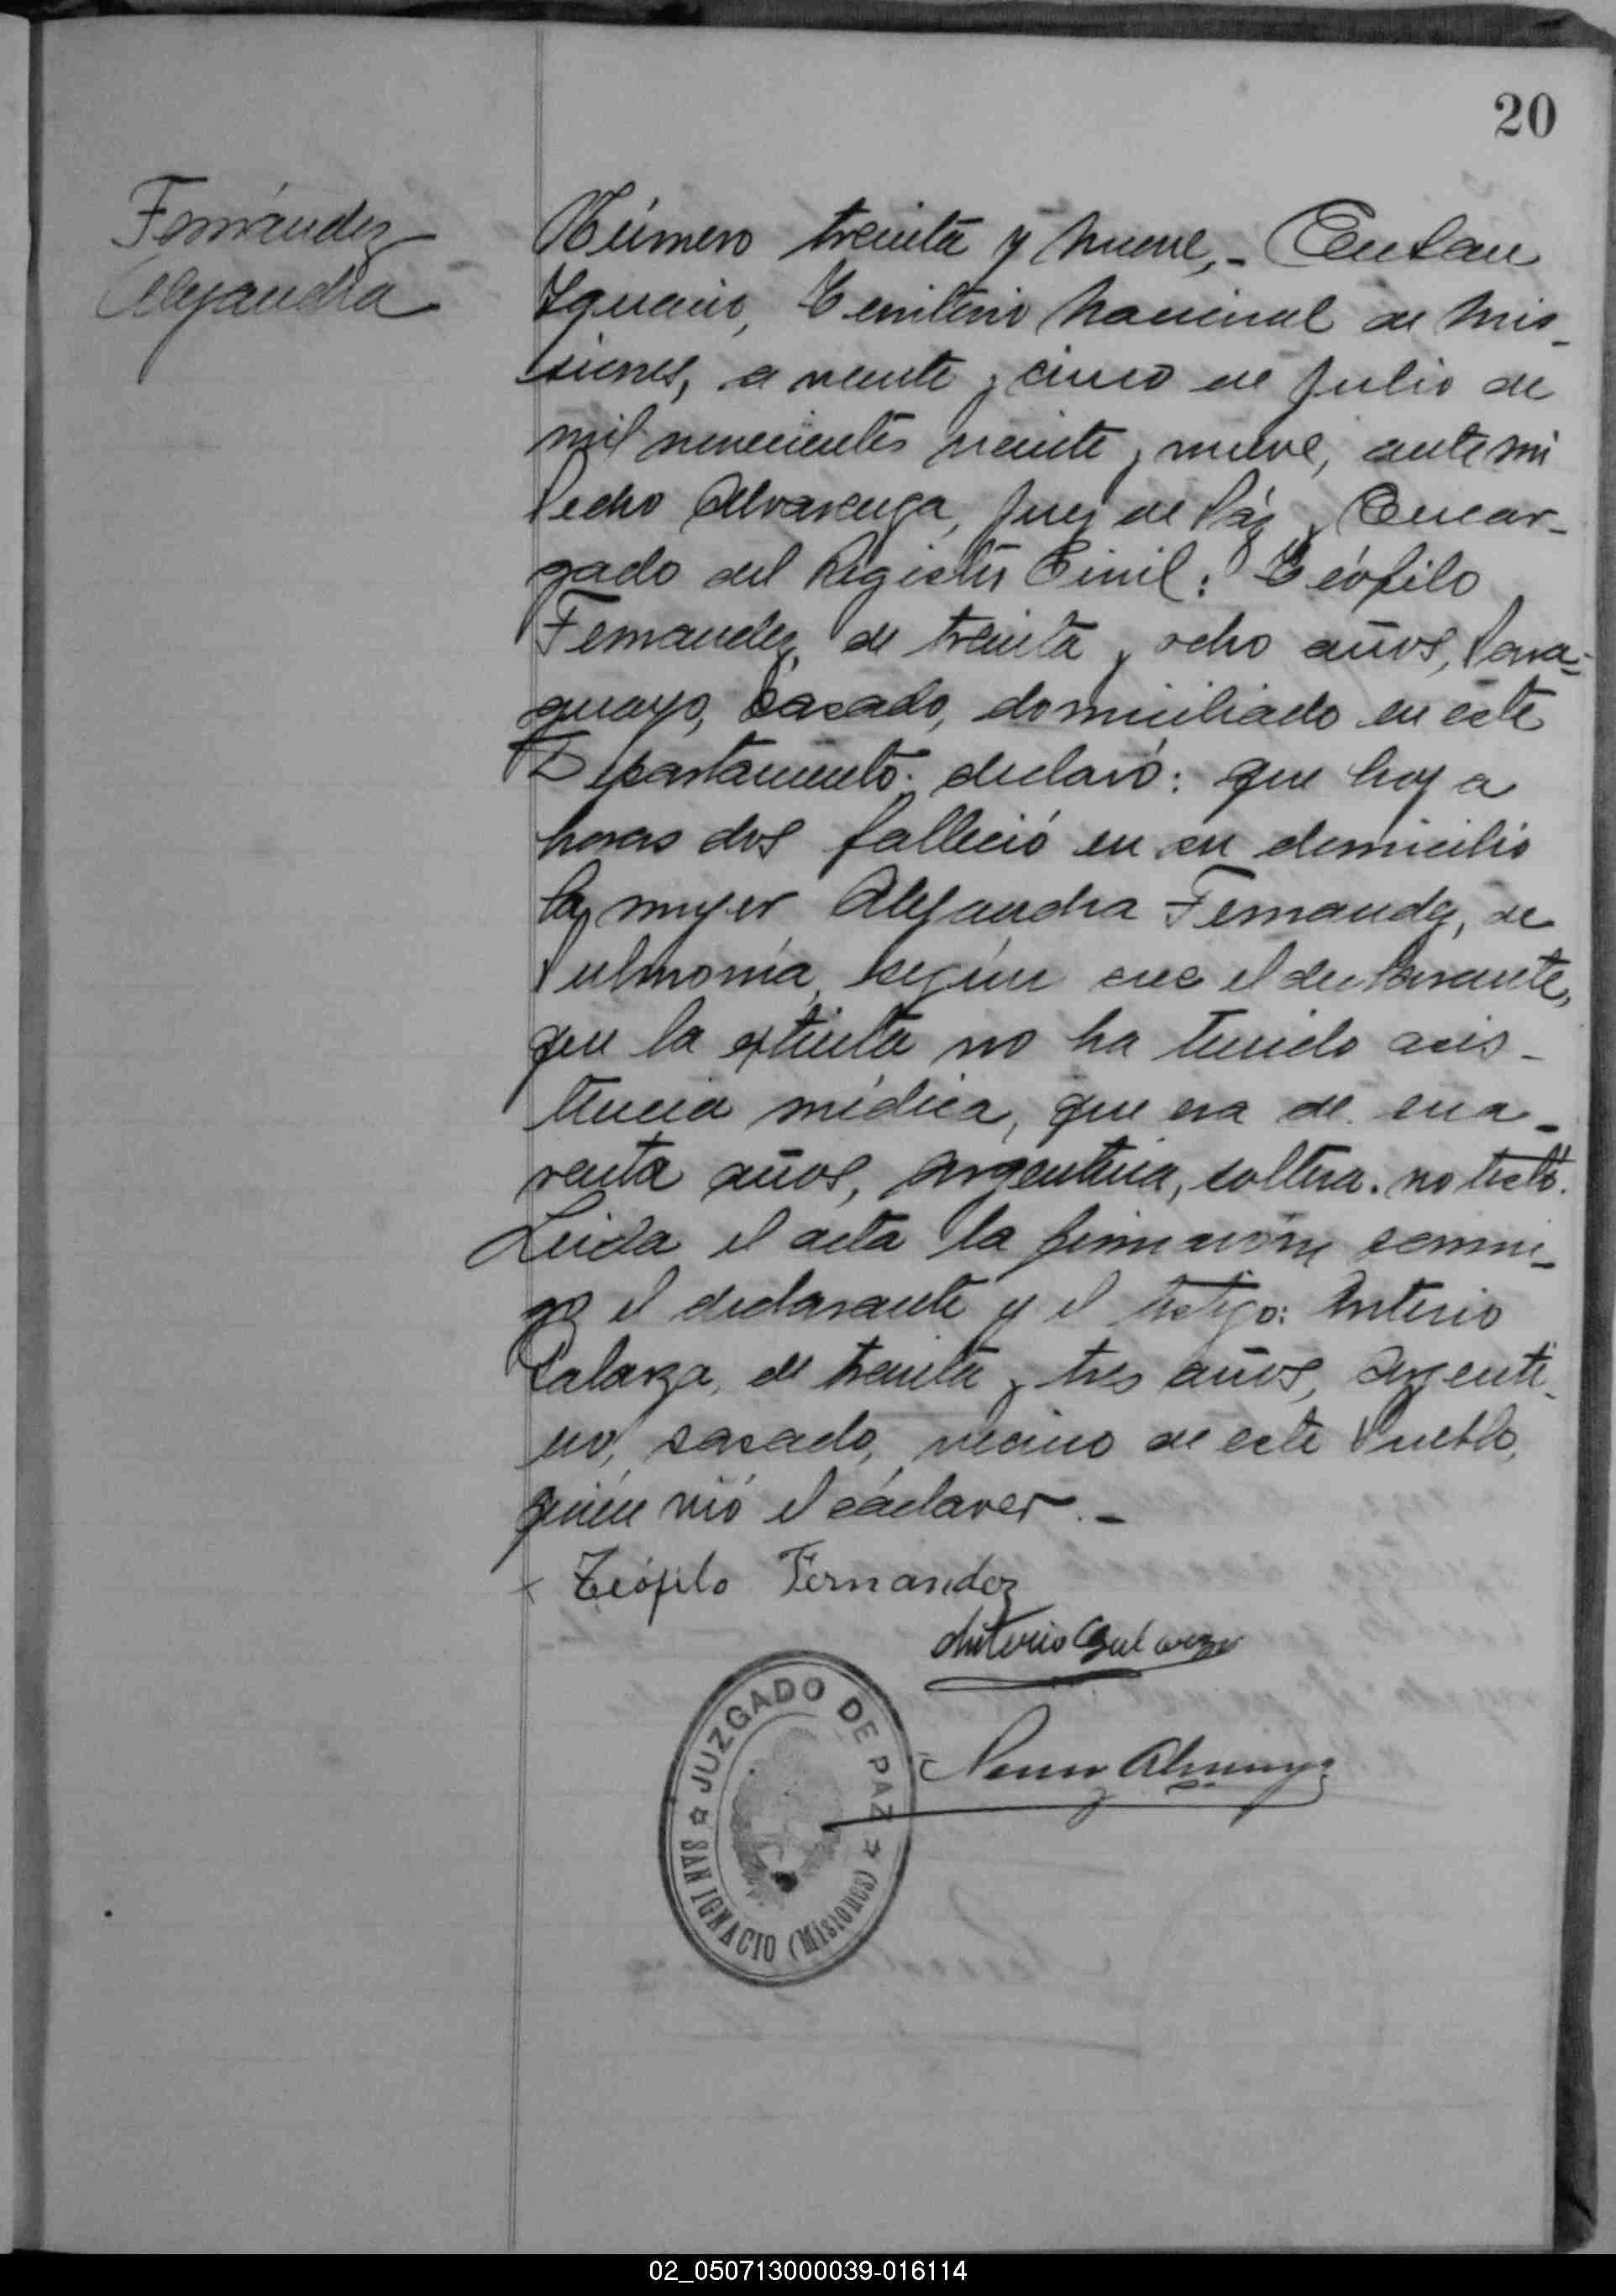 20
Fernández
Alejandra
Número treinta y nueve,- En San
Ignacio, Territorio Nacional de Mis-
siones, a veinte y cinco de Julio de
mil novecientos veinte y nueve, ante mi
Pedro Alvarenga, Juez de Páz y Encar-
gado del Registro Civil: Teófilo
Fernandez, de treinta y ocho años, Para-
guayo, casado, domiciliado en este
Departamento: declaró: que hoy a
horas dos falleció en su domicilio
la mujer Alejandra Fernandez, de
Pulmonía, según cree el declarante,
que la extinta no ha tenido asis-
tencia médica, que era de cua-
renta años, argentina, soltera. no testó.
Leida el acta la firmaron conmi-
go el declarante y el testigo: Anterio
Galarza, de treinta y tres años, Argenti-
no, casado, vecino de este Pueblo,
quien vió el cádaver.-
x Teófilo Fernandez
Anterio Galarza
JUZGADO DE PAZ
SAN IGNACIO (Misiones)
02_050713000039-016114